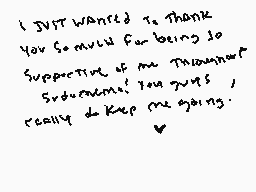 I JUST wanted To Thank
you so much for being so
supportive of me Throughout
! you guys
really do keep me going!